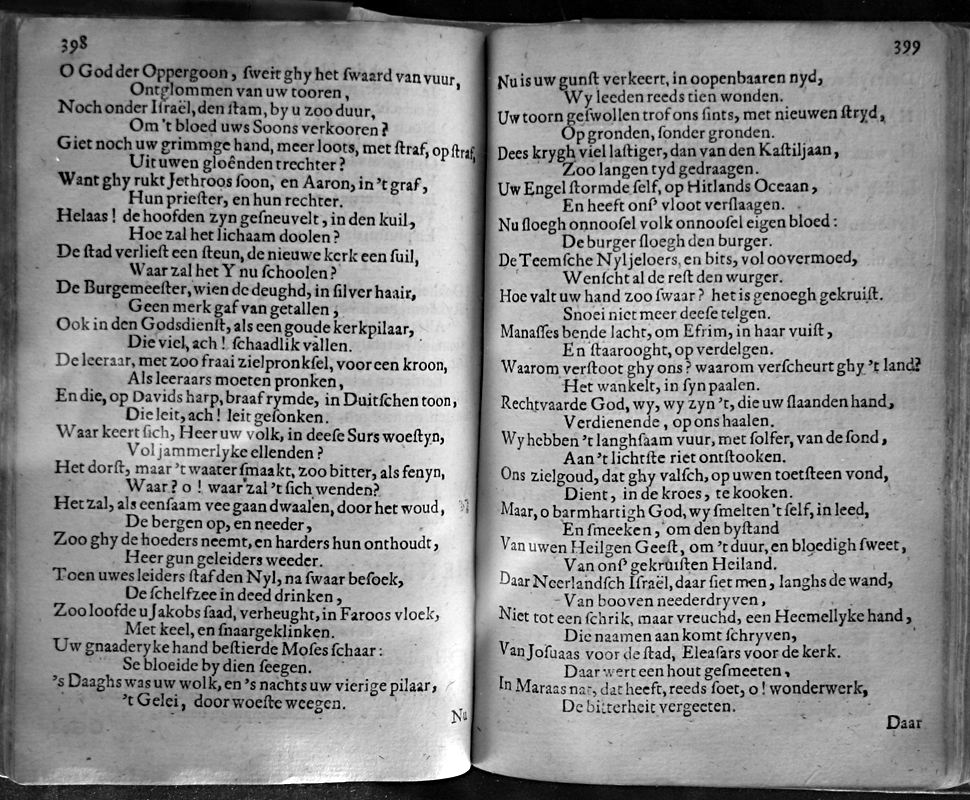 398
O God der Oppergoon, ſweit ghy het ſwaard van vuur,
Ontglommen van uw tooren,
Noch onder Iſraël, den ſtam, by u zoo duur,
Om 't bloed uws Soons verkooren?
Giet noch uw grimmge hand, meer loots, met ſtraf, op ſtraf,
Uit uwen gloênden trechter?
Want ghy rukt Jethroos ſoon, en Aaron, in 't graf,
Hun prieſter, en hun rechter.
Helaas! de hoofden zyn geſneuvelt, in den kuil,
Hoe zal het lichaam doolen?
De ſtad verlieſt een ſteun, de nieuwe kerk een ſuil,
Waar zal het Y nu ſchoolen?
De Burgemeeſter, wien de deughd, in ſilver haair,
Geen merk gaf van getallen,
Ook in den Godsdienſt, als een goude kerkpilaar,
Die viel, ach! ſchaadlik vallen.
De leeraar, met zoo fraai zielpronkſel, voor een kroon,
Als leeraars moeten pronken,
En die, op Davids harp, braaf rymde, in Duitſchen toon,
Die leit, ach! leit geſonken.
Waar keert ſich, Heer uw volk, in deeſe Surs woeſtyn,
Vol jammerlyke ellenden?
Het dorſt, maar 't waater ſmaakt, zoo bitter, als fenyn,
Waar? o! waar zal 't ſich wenden?
Het zal, als eenſaam vee gaan dwaalen, door het woud,
De bergen op, en needer,
Zoo ghy de hoeders neemt, en harders hun onthoudt,
Heer gun geleiders weeder.
Toen uwes leiders ſtaf den Nyl, na ſwaar beſoek,
De ſchelfzee in deed drinken,
Zoo loofde u Jakobs ſaad, verheught, in Faroos vloek,
Met keel, en ſnaargeklinken.
Uw gnaaderyke hand beſtierde Moſes ſchaar:
Se bloeide by dien ſeegen.
's Daaghs was uw wolk, en 's nachts uw vierige pilaar,
't Gelei, door woeſte weegen.
Nu
399
Nu is uw gunſt verkeert, in oopenbaaren nyd,
Wy leeden reeds tien wonden.
Uw toorn geſwollen trof ons ſints, met nieuwen ſtryd,
Op gronden, ſonder gronden.
Dees krygh viel laſtiger, dan van den Kaſtiljaan,
Zoo langen tyd gedraagen.
Uw Engel ſtormde ſelf, op Hitlands Oceaan,
En heeft onſ' vloot verſlaagen.
Nu ſloegh onnooſel volk onnooſel eigen bloed:
De burger ſloegh den burger.
De Teemſche Nyl jeloers, en bits, vol oovermoed,
Wenſcht al de reſt den wurger.
Hoe valt uw hand zoo ſwaar? het is genoegh gekruiſt.
Snoei niet meer deeſe telgen.
Manaſſes bende lacht, om Efrim, in haar vuiſt,
En ſtaarooght, op verdelgen.
Waarom verſtoot ghy ons? waarom verſcheurt ghy 't land?
Het wankelt, in ſyn paalen.
Rechtvaarde God, wy, wy zyn 't, die uw ſlaanden hand,
Verdienende, op ons haalen.
Wy hebben 't langhſaam vuur, met ſolfer, van de ſond,
Aan 't lichtſte riet ontſtooken.
Ons zielgoud, dat ghy valſch, op uwen toetſteen vond,
Dient, in de kroes, te kooken.
Maar, o barmhartigh God, wy ſmelten 't ſelf, in leed,
En ſmeeken, om den byſtand
Van uwen Heilgen Geeſt, om 't duur, en bloedigh ſweet,
Van onſ' gekruiſten Heiland.
Daar Neerlandſch Iſraël, daar ſiet men, langhs de wand,
Van booven neederdryven,
Niet tot een ſchrik, maar vreuchd, een Heemellyke hand,
Die naamen aan komt ſchryven,
Van Joſuaas voor de ſtad, Eleaſars voor de kerk.
Daar wert een hout geſmeeten,
In Maraas nat, dat heeft, reeds ſoet, o! wonderwerk,
De bitterheit vergeeten.
Daar